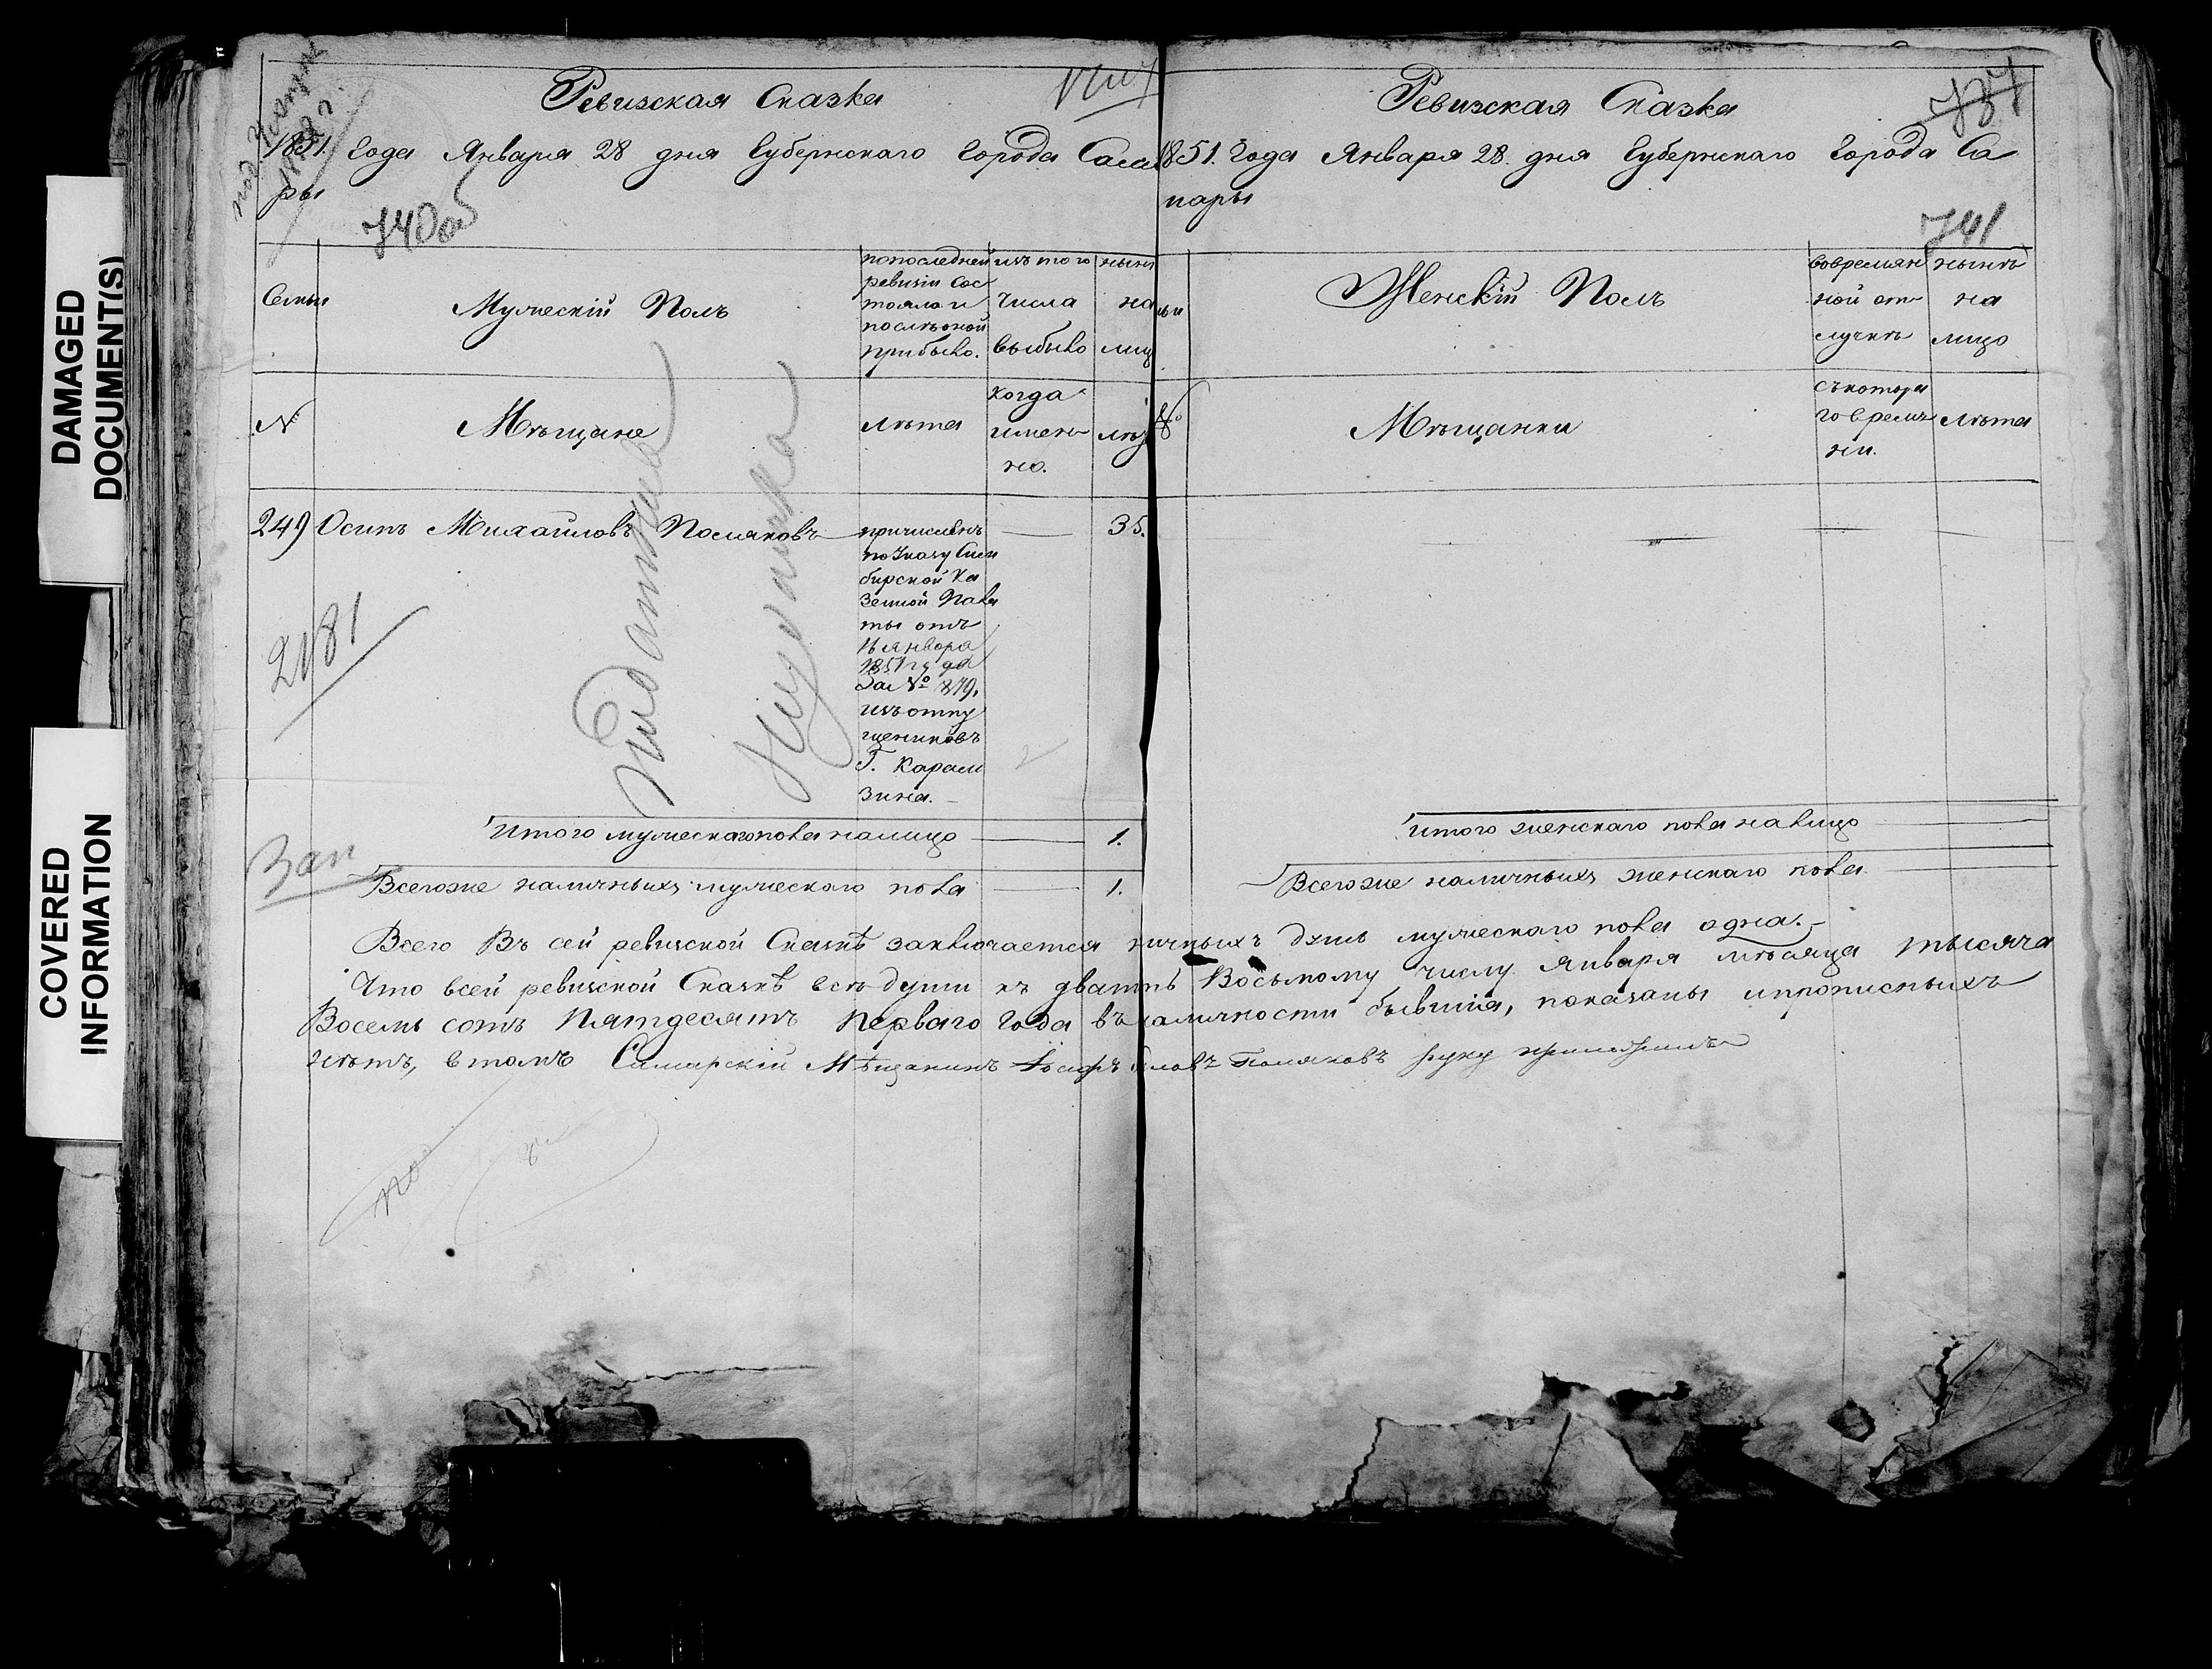 DAMAGED
DOCUMENT(S)
COVERED
INFORMATION
Ревизская Сказка
1851. года Января 28 дня Губернскаго Города Сама
ры
740об
Семьи
Мужескій Полъ
попоследней
ревизіи сос
тояло и
послѣоной
прибыло.
изъ того
числа
выбыло
нынѣ
на
лиц
№
Мѣщане
лѣта
когда
имен
но.
лѣт
249 Осипъ Михайловъ Поляковъ
причисленъ
по Указу Сим
бирской Ка
зенной Пала
ты отъ
11 января
1851 года
За № 879,
изъ отпу
щениковъ
Г. Карам
зина.
— 35.
2181
Итого мужескаго пола налицо — 1.
Зап
Всегоже наличныхъ мужескаго пола — 1.
Ревизская Сказка
737
1851. года Января 28. дня Губернскаго Города Са
мары
741
Женскій Полъ
вовремян
ной от
лучкѣ
нынѣ
на
лицо
№
Мѣщанки
съкотора
го време
ни.
лѣта
Итого женскаго пола налицо
Всегоже наличныхъ женскаго пола
Всего Въ сей ревизской Сказкѣ заключается личныхъ душъ мужескаго пола одна.
Что всей ревизской Сказкѣ всѣ души къ дватцѣ Восьмому числу Января мѣсяца тысяча
Восемь сотъ Пятдесятъ перваго Года въ наличности бывшіа, показаны ипрописныхъ
нѣтъ, втомъ Самарскій Мѣщанинъ Іосифъ Поляковъ руку приложилъ
49